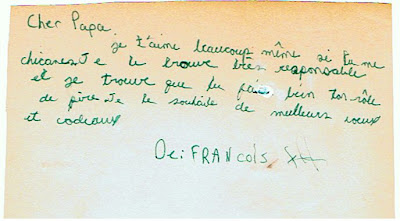 Cher Papa
je t'aime beaucoup même si tu me
chicanes. Je te trouve très responsable
et je trouve que tu fais bien ton rôle
de père. Je te souhaite de meilleurs voeux
et cadeaux
De: FRANCoIS